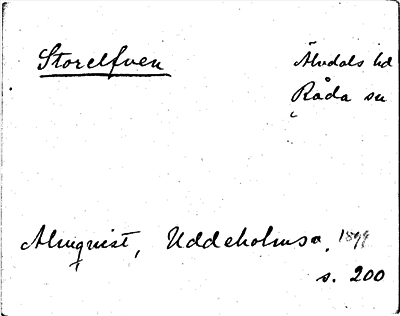 Storelfven
Älvdals hd
Råda sn
Almquist, Uddeholmsa, 1899
s. 200